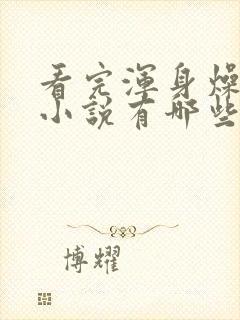 看完渾身燥
小說有哪些
博耀